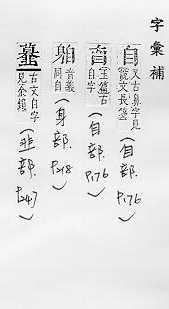 字彙補
自 又古鼻字見說文長箋 (自部 P.176)
玉篇古自字 (自部 P.176)
音義同自 (身部 P.218)
古文自字見金鏡 (韭部 P.247)